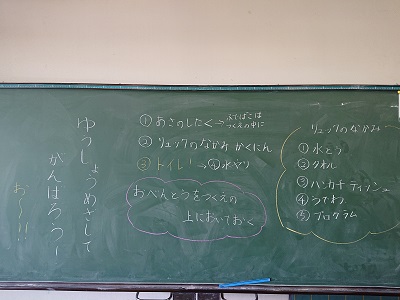 ゆうしょうめざして
がんばろう〜
お〜!!
①あさのしたく→ふでばこは
つくえの中に
②リュックのなかみ かくにん
③トイレ→④水やり
おべんとうをつくえの
上においておく
リュックのなかみ
①水とう
②タオル
③ハンカチティッシュ
④うちわ
⑤プログラム